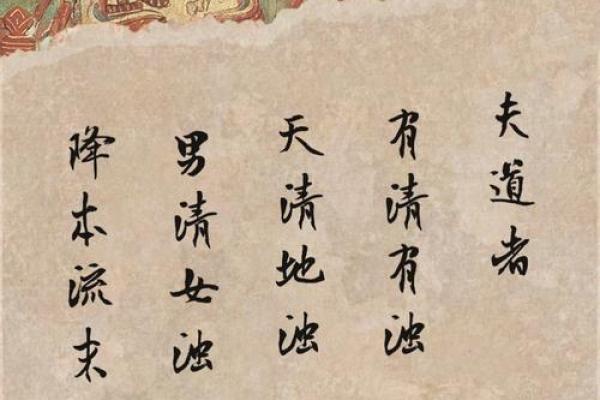 夫道者
有清有浊
天清地浊
男清女浊
降本流末